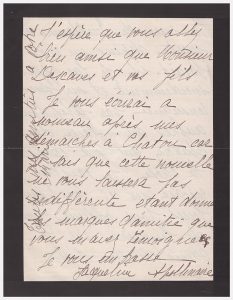 J'espère que vous allez
bien ainsi que Monsieur
Descaves et vos fils
Je vous écrirai à
nouveau après mes
démarches à Chatou car
sais que cette nouvelle
ne vous laissera pas
indifférente étant donné
les marques d'amitié que
vous m'avez témoignées
Je vous embrasse
Jacqueline Apollinaire